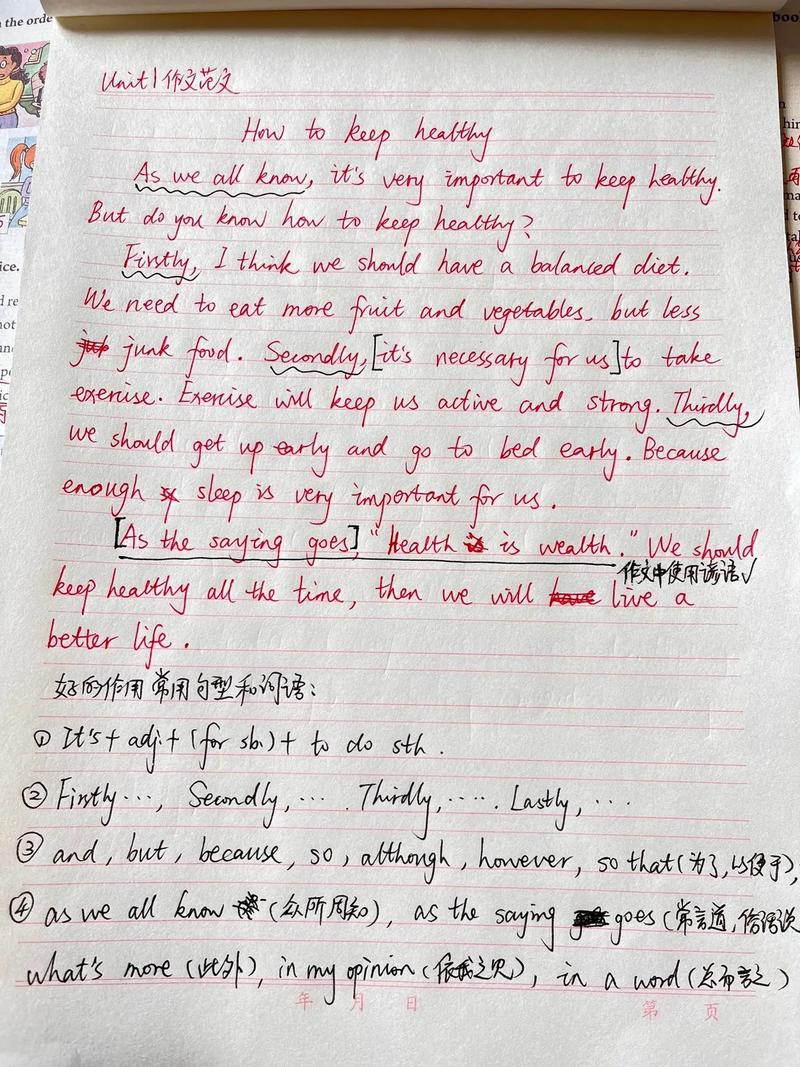 the orde
Unit 1 作文范文
How to keep healthy
As we all know, it's very important to keep healthy.
But do you know how to keep healthy?
Firstly, I think we should have a balanced diet.
We need to eat more fruit and vegetables, but less
junk food. Secondly, [it's necessary for us] to take
exercise. Exercise will keep us active and strong. Thirdly,
we should get up early and go to bed early. Because
enough sleep is very important for us.
[As the saying goes], "Health is wealth." We should
作文中使用谚语√
keep healthy all the time, then we will live a
better life.
好的作用常用句型和词语:
① It's + adj. + (for sb.) + to do sth.
② Firstly ..., Secondly, ... Thirdly, ..... Lastly, ...
③ and, but, because, so, although, however, so that (为了,以便于),
④ as we all know (众所周知), as the saying goes (常言道,俗话说
what's more (此外), in my opinion (依我之见), in a word (总而言之)
年 月 日 第 页